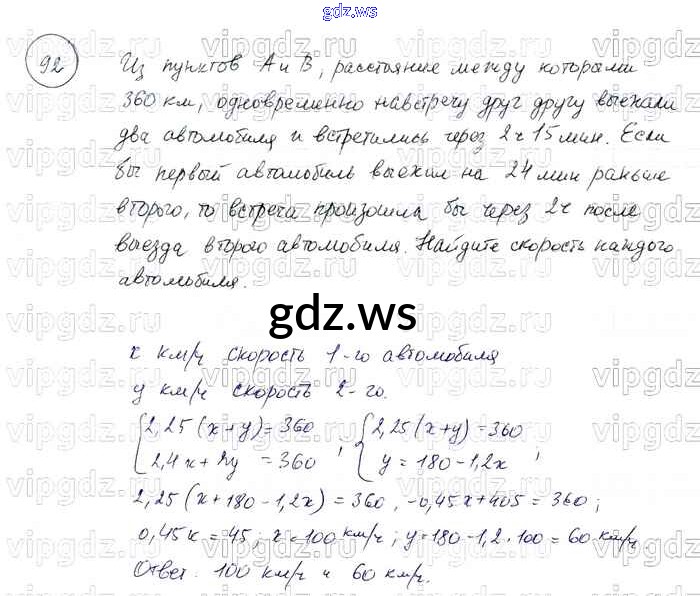 gdz.ws
92
Из пунктов А и В, расстояние между которыми
360 км, одновременно навстречу друг другу выехали
два автомобиля и встретились через 2ч 15 мин. Если
бы первый автомобиль выехал на 24 мин раньше
второго, то встреча произошла бы через 2ч после
выезда второго автомобиля. Найдите скорость каждого
автомобиля.
gdz.ws
x км/ч скорость 1-го автомобиля
y км/ч скорость 2-го.
{2,25(x+y)=360 ; {2,25(x+y)=360
{2,4x+2y =360 {y=180-1,2x ;
2,25(x+180-1,2x)=360, -0,45x+405=360;
0,45x=45; x=100 км/ч; y=180-1,2·100=60 км/ч
Ответ: 100 км/ч и 60 км/ч.
vipgdz.ru